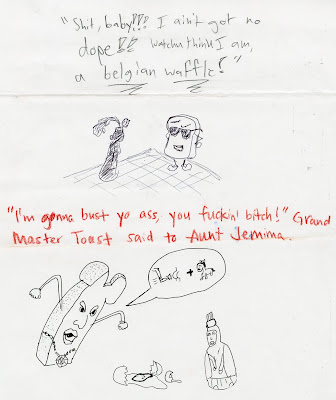 "Shit, baby!!! I ain't got no
dope!! watcha think I am,
a belgian waffle!"
"I'm gonna bust yo ass, you fuckin' bitch!" Grand
Master Toast said to Aunt Jemima.
Back +